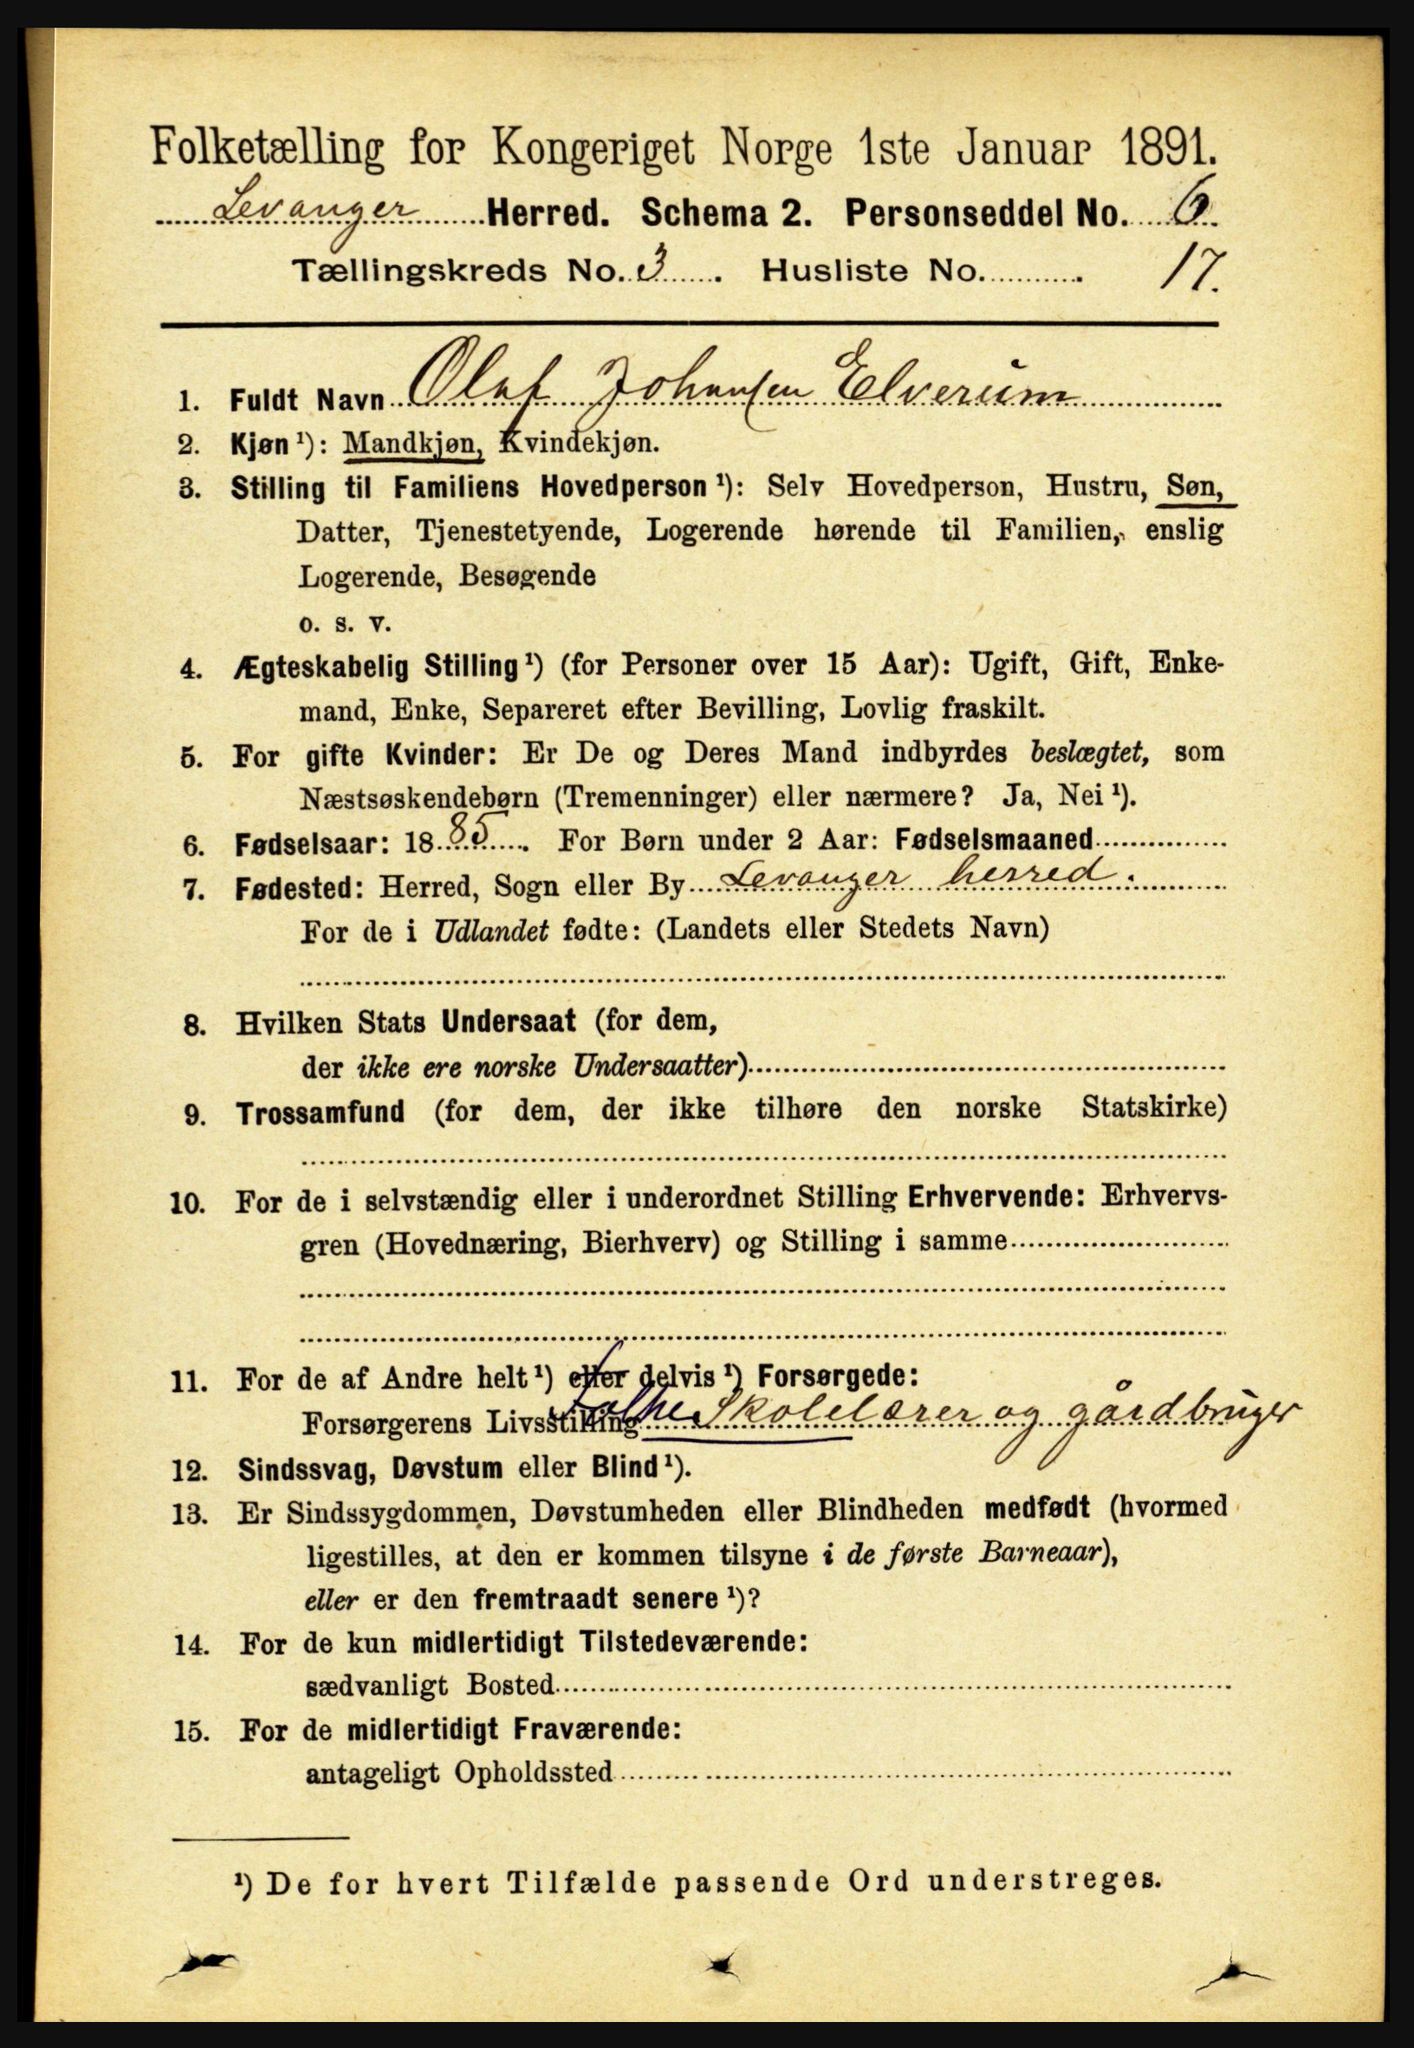 Folketælling for Kongeriget Norge 1ste Januar 1891.
Levanger Herred. Schema 2. Personseddel No. 6.
Tællingskreds No. 3. Husliste No. 17.
1. Fuldt Navn Olaf Johansen Elverum
2. Kjøn ¹): Mandkjøn, Kvindekjøn.
3. Stilling til Familiens Hovedperson ¹): Selv Hovedperson, Hustru, Søn,
Datter, Tjenestetyende, Logerende hørende til Familien, enslig
Logerende, Besøgende
o. s. v.
4. Ægteskabelig Stilling ¹) (for Personer over 15 Aar): Ugift, Gift, Enke-
mand, Enke, Separeret efter Bevilling, Lovlig fraskilt.
5. For gifte Kvinder: Er De og Deres Mand indbyrdes beslægtet, som
Næstsøskendebørn (Tremenninger) eller nærmere? Ja, Nei ¹).
6. Fødselsaar: 1885. For Børn under 2 Aar: Fødselsmaaned
7. Fødested: Herred, Sogn eller By Levanger herred.
For de i Udlandet fødte: (Landets eller Stedets Navn)
8. Hvilken Stats Undersaat (for dem,
der ikke ere norske Undersaatter)
9. Trossamfund (for dem, der ikke tilhøre den norske Statskirke)
10. For de i selvstændig eller i underordnet Stilling Erhvervende: Erhvervs-
gren (Hovednæring, Bierhverv) og Stilling i samme
11. For de af Andre helt ¹) eller delvis ¹) Forsørgede:
Forsørgerens Livsstilling Folkeskolelærer og gårdbruger
12. Sindssvag, Døvstum eller Blind ¹).
13. Er Sindssygdommen, Døvstumheden eller Blindheden medfødt (hvormed
ligestilles, at den er kommen tilsyne i de første Barneaar),
eller er den fremtraadt senere ¹)?
14. For de kun midlertidigt Tilstedeværende:
sædvanligt Bosted
15. For de midlertidigt Fraværende:
antageligt Opholdssted
¹) De for hvert Tilfælde passende Ord understreges.